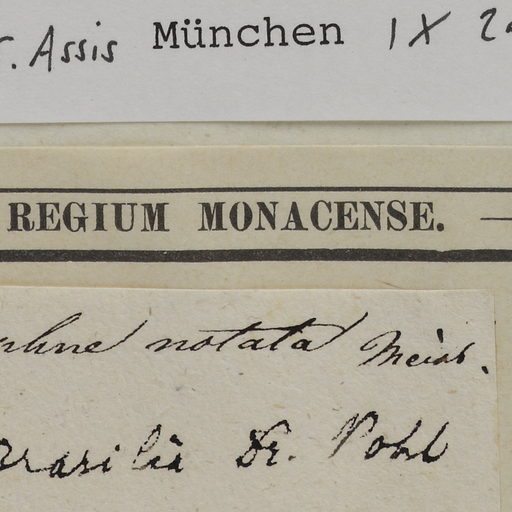 r. Assis München IX 2
REGIUM MONACENSE.
phne notata Meisb.
rrasilia Dr. Pohl